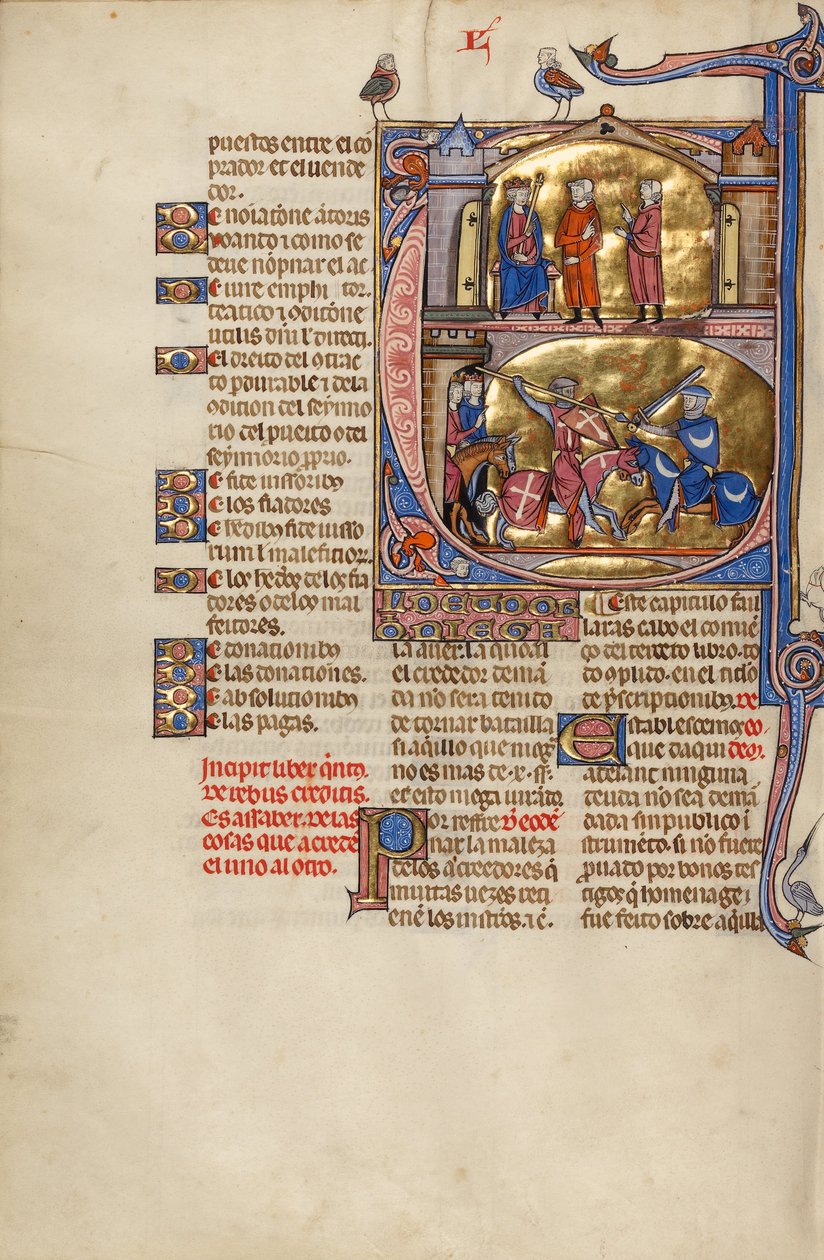 puestos entre el cõ
prador et el uende
dor.
De noiatõne ãtoris
Quanto ⁊ como se
deue nõpnar el ac
De iure emphi tor.
teatico ⁊ ꝯditõne
utilis dñi ł directi.
Del dreito del ꝯtrac
to pdurable ⁊ dela
ꝯdition del seynno
rio del puerto o del
seynnorio prio.
De fide iussoribꝯ
De los fiadores
De hedibꝯ fide iusso
rum ł maleficior
De los hedos delos fia
dores o delos mal
feitores.
De donationibꝯ
De las donationes.
De absolutionibꝯ
De las pagas.
Incipit liber qñtꝯ.
De rebus creditis.
Es assaber. de las
cosas que acreden
el uno al otro.
L deudor
niega
la auer. la qual
el creedor demã
da no sera tenido
de tornar batailla
si aqillo que
no es mas de .x. ss.
et esto niega iurãdo.
Por reffre De eodẽ
nar la maleza
delos acreedores q̃
muitas uezes reti
enẽ los
Este capitulo fai
laras cabo el comiẽ
ço del tercero libro. to
do ꝯplido. en el titlo
de pscriptionibꝯ. De
Establescemos eo
que daqui dem.
adelant ninguna
deuda nõ sea demã
dada sin publico ĩ
strumẽto. si nõ fuere
prouado por bonos tes
tigos q̃ homenage
fue feito sobre aqilla